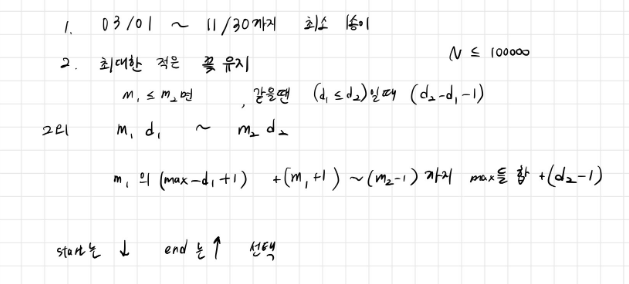 1. 03/01 ~ 11/30까지 최소 1송이
N ≤ 100000
2. 최대한 적은 꽃 유지
m₁ ≤ m₂면 , 같을땐 (d₁ ≤ d₂)일때 (d₂-d₁-1)
m₁ d₁ ~ m₂ d₂
m₁의 (max-d₁+1) +(m₁+1) ~ (m₂-1) 까지 max들 합 +(d₂-1)
start는 ↓ end는 ↑ 선택